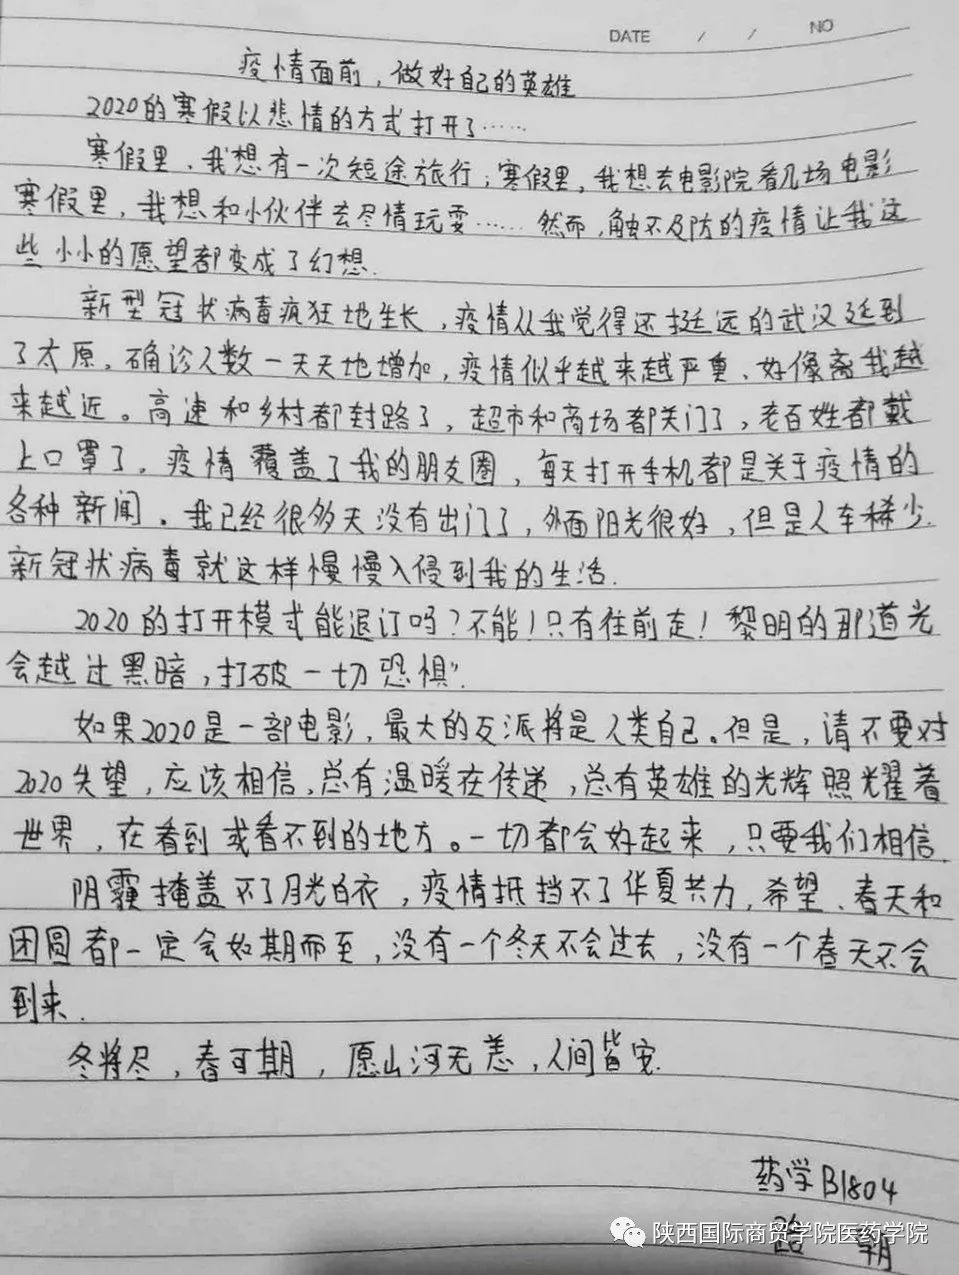 DATE / / NO
疫情面前，做好自己的英雄
2020的寒假以悲情的方式打开了……
寒假里、我想有一次短途旅行；寒假里，我想去电影院看几场电影
寒假里，我想和小伙伴去尽情玩耍……然而，触不及防的疫情让我这
些小小的愿望都变成了幻想.
新型冠状病毒疯狂地生长，疫情从我觉得还挺远的武汉延到
了太原，确诊人数一天天地增加，疫情似乎越来越严重、好像离我越
来越近。高速和乡村都封路了，超市和商场都关门了，老百姓都戴
上口罩了。疫情覆盖了我的朋友圈，每天打开手机都是关于疫情的
各种新闻。我已经很多天没有出门了，外面阳光很好，但是人车稀少.
新冠状病毒就这样慢慢入侵到我的生活.
2020的打开模式能退订吗？不能！只有往前走！黎明的那道光
会越过黑暗，打破一切恐惧”.
如果2020是一部电影，最大的反派将是人类自己。但是，请不要对
2020失望，应该相信，总有温暖在传递，总有英雄的光辉照耀着
世界，在看到或看不到的地方。一切都会好起来，只要我们相信.
阴霾掩盖不了月光白衣，疫情抵挡不了华夏共力，希望、春天和
团圆都一定会如期而至，没有一个冬天不会过去，没有一个春天不会
到来.
冬将尽，春可期，愿山河无恙，人间皆安.
药学B1804
路 朝
陕西国际商贸学院医药学院